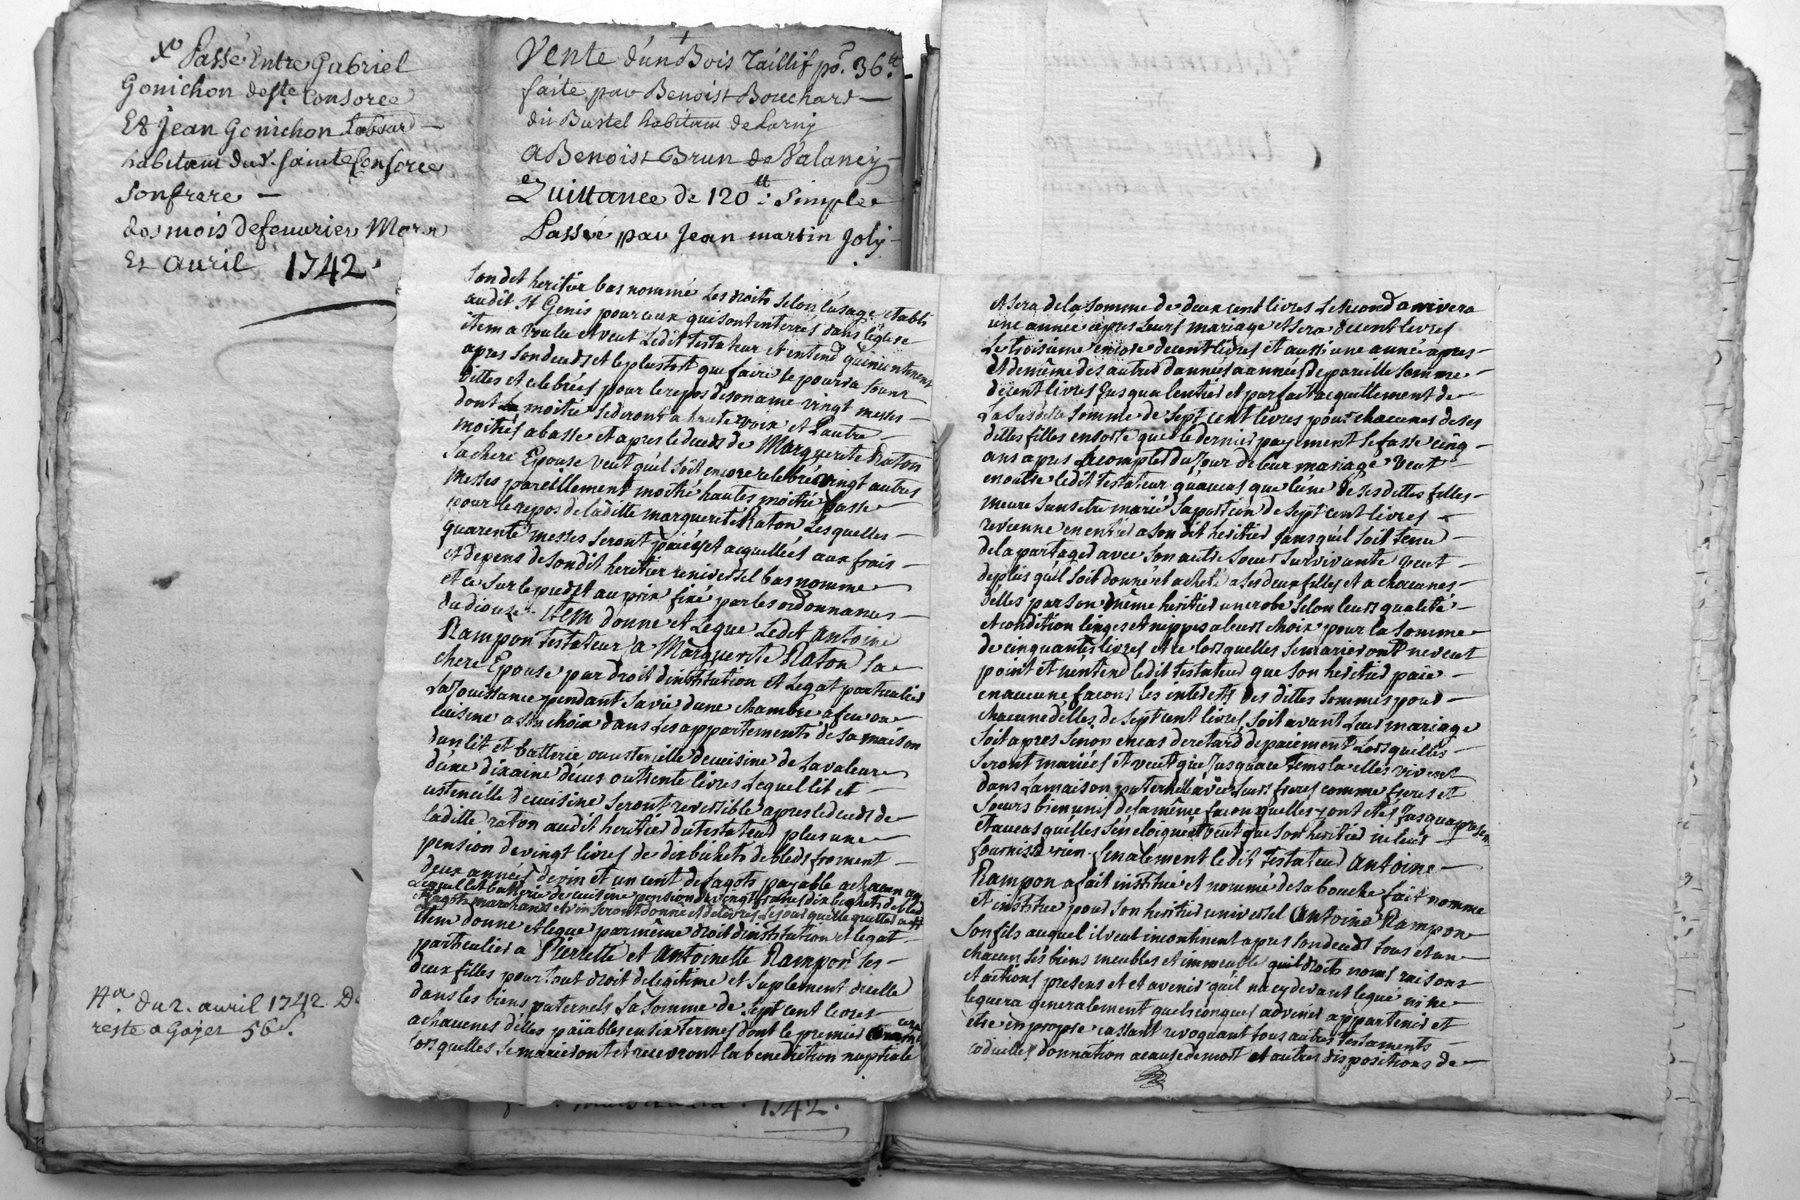 Passé Entre Gabriel
Gonichon de Ste Consorce
Et Jean Gonichon Labour
habitant dud. Sainte Consorce
son frere
des mois de feuvrier Mars
Et auril 1742.
du 2. avril 1742
reste a 56 s.
Vente d'un Bois Taillif po.r 36 tt
faite par Benoist Bouchard
dit Burtel habitant de
a Benoist Brun de
Quittance de 120 tt: simple
Passée par Jean martin Joly
1742.
son dit heritier bas nommé les droits selon l'usage etabli
audit St Genis pour ceux qui sont interrés dans l'église
item a voulu et veut Ledit testateur et entend qu'incontinent
apres son deceds et le plustot que faire se pourra soient
dittes et celebrées pour le repos de son ame vingt messes
dont la moitié se diront a haute voix et l'autre
moitiés a basse et apres le deceds de Marguerite Raton
sa chere Epouse veut qu'il soit encore celebrés vingt autres
messes pareillement moitié hautes moitié basse
pour le repos de laditte marguerite Raton, Lesquelles
quarente messes seront païées et acquittées aux frais
et depens de son dit heritier universel bas nommé
et ce sur le pied et au prix fixé par les ordonnances
du dioceze. Item donne et Legue Ledit Antoine
Rampon testateur a Marguerite Raton sa
chere Epouse par droit d'institution et Legat particulier
La Jouissance pendant sa vie d'une chambre a feu ou
cuisine a son choix dans Les appartements de sa maison
d'un lit et batterie ou ustencille de cuisine de La valeur
d'une dixaine d'écus ou trente livres Lequel lit et
ustencille de cuisine seront reversible apres le deceds de
laditte raton audit heritier du testateur plus une
pension de vingt livres de dix bichets de bled froment
deux années de vin et un cent de fagots payable a chacun an
Lequel lit batterie de cuisine pension de vingt francs dix bichets de bled
item donne et legue par même droit d'institution et legat
particulier a Pierrette et Antoinette Rampon ses
deux filles pour tout droit de legitime et suplement d'icelle
dans les biens paternels La somme de sept cent livres
a chacunes d'elles païables en six termes dont le premier
lorsquelles se marieront et recevront la benediction nuptiale
et sera de la somme de deux cent livres Le second arrivera
une année apres Leurs mariage et sera de cent livres
Le troisieme encore de cent livres et aussi une année apres
et de même des autres d'années a années de pareille somme
de cent livres Jusqu'a l'entier et parfait acquittement de
La susditte somme de sept cent livres pour chacunes de ses
dittes filles en sorte que le dernier payement se fasse cinq
ans apres a compter du Jour de leur mariage Veut
en outre ledit testateur qu'au cas que l'une de ses dittes filles
meure sans etre marié sa portion de sept cent livres
revienne en entier a son dit heritier sans qu'il soit tenu
de la partager avec son autre soeur survivante Veut
de plus qu'il soit donné et acheté a ses deux filles et a chacunes
d'elles par son même heritier une robe selon leurs qualité
et condition linges et nippes a leurs choix pour la somme
de cinquante livres et ce lorsquelles se marieront ne veut
point et n'entend ledit testateur que son heritier païe
en aucune façon les interets des dittes sommes pour
chacune d'elles de sept cent livres soit avant Leur mariage
soit apres sinon en cas de retard de paiement Lorsqu'elles
seront mariées et veut que Jusqu'a ce tems la elles vivent
dans La maison paternelle avec leurs freres comme freres et
soeurs bien unis de la même façon quelles y ont etés Jusqu'a present
et au cas qu'elles s'en eloignent veut que son heritier ne leur
fournisse rien. finalement ledit testateur Antoine
Rampon a fait institué et nommé de sa bouche fait nomme
et institue pour son heritier universel Antoine Rampon
son fils auquel il veut incontinent apres son deceds tous et un
chacun ses biens meubles et immeuble quil droits noms raisons
et actions presens et et avenir qu'il n'a cy devant legué ni ne
leguera generalement quelconques advenir appartenir et
etre en propre cassant revoquant tous autres testaments
codicilles donnation a cause de mort et autres dispositions de